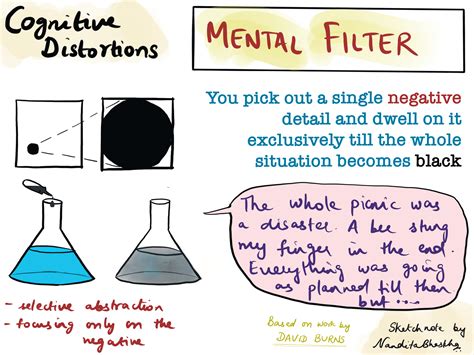 Cognitive
Distortions
MENTAL FILTER
You pick out a single negative
detail and dwell on it
exclusively till the whole
situation becomes black
The whole picnic was
a disaster. A bee stung
my finger in the end.
Everything was going
as planned till then
but ...
- selective abstraction
- focusing only on the
negative
Based on work by
DAVID BURNS
Sketchnote by